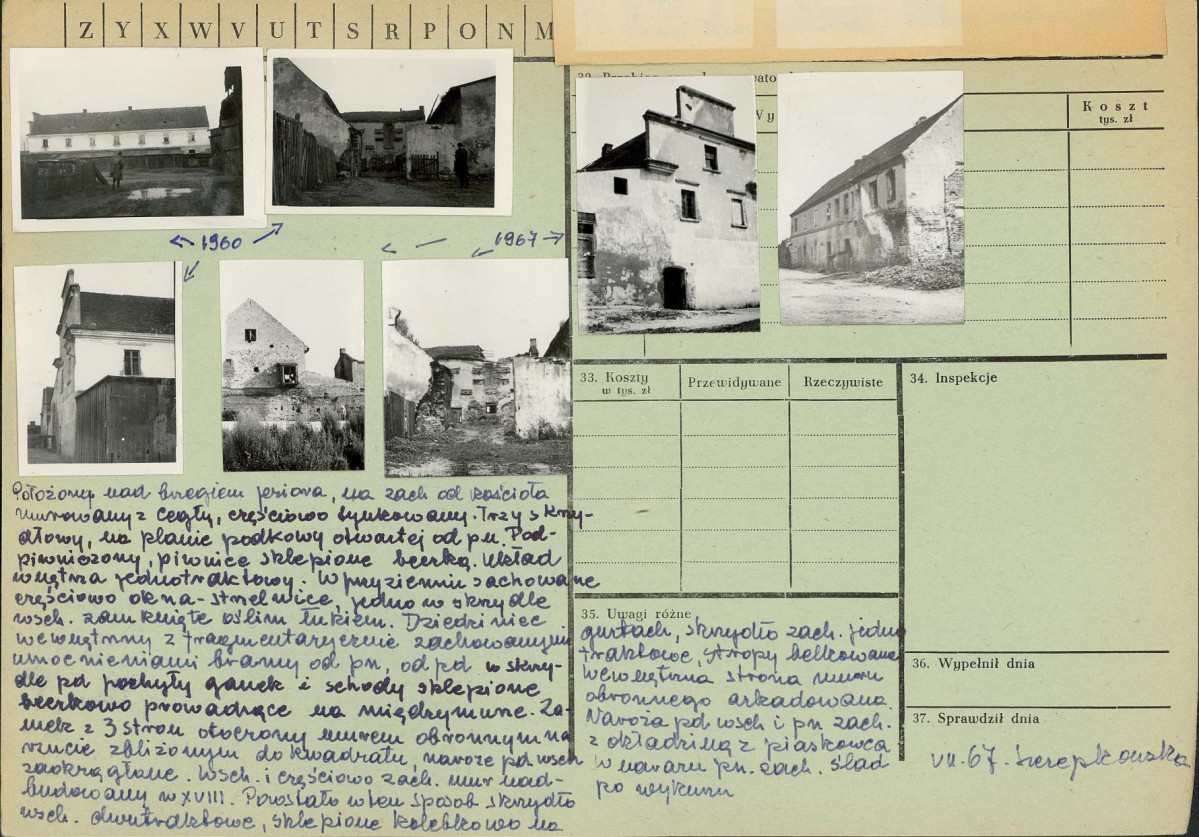 Z Y X W V U T S R P O N M
Koszt
tys. zł
1960
1967
33. Koszty
w tys. zł
Przewidywane
Rzeczywiste
34. Inspekcje
Położony nad brzegiem jeziora, na zach od kościoła
murowany z cegły, częściowo tynkowany. Trzy skrzy-
dłowy, na planie podkowy otwartej od pn. Pod-
piwniczony, piwnice sklepione beczką. Układ
wnętrza jednotraktowy. W przyziemiu zachowane
częściowo okna-strzelnice, jedno w skrzydle
wsch. zamknięte oślim łukiem. Dziedziniec
wewnętrzny z fragmentarycznie zachowanymi
umocnieniami bramy od pn, od pd w skrzy-
dle pd pochyły ganek i schody sklepione
beczkowo prowadzące na międzymurze. Za-
mek z 3 stron otoczony murem obronnym na
rzucie zbliżonym do kwadratu, naroże pd wsch
zaokrąglone. Wsch. i częściowo zach. mur nad-
budowany w XVIII. Powstało w ten sposób skrzydło
wsch. dwutraktowe, sklepione kolebkowo na
35. Uwagi różne
gurtach, skrzydło zach. jedno
traktowe, stropy belkowane
Wewnętrzna strona muru
obronnego arkadowana.
Naroża pd wsch i pn. zach.
z okładziną z piaskowca
W narożu pn. zach. ślad
po wykuszu
36. Wypełnił dnia
37. Sprawdził dnia
VII. 67. Szczepkowska